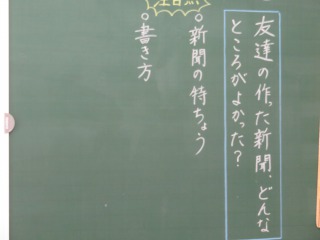 友達の作った新聞、どんな
ところがよかった?
。新聞の特ちょう
。書き方